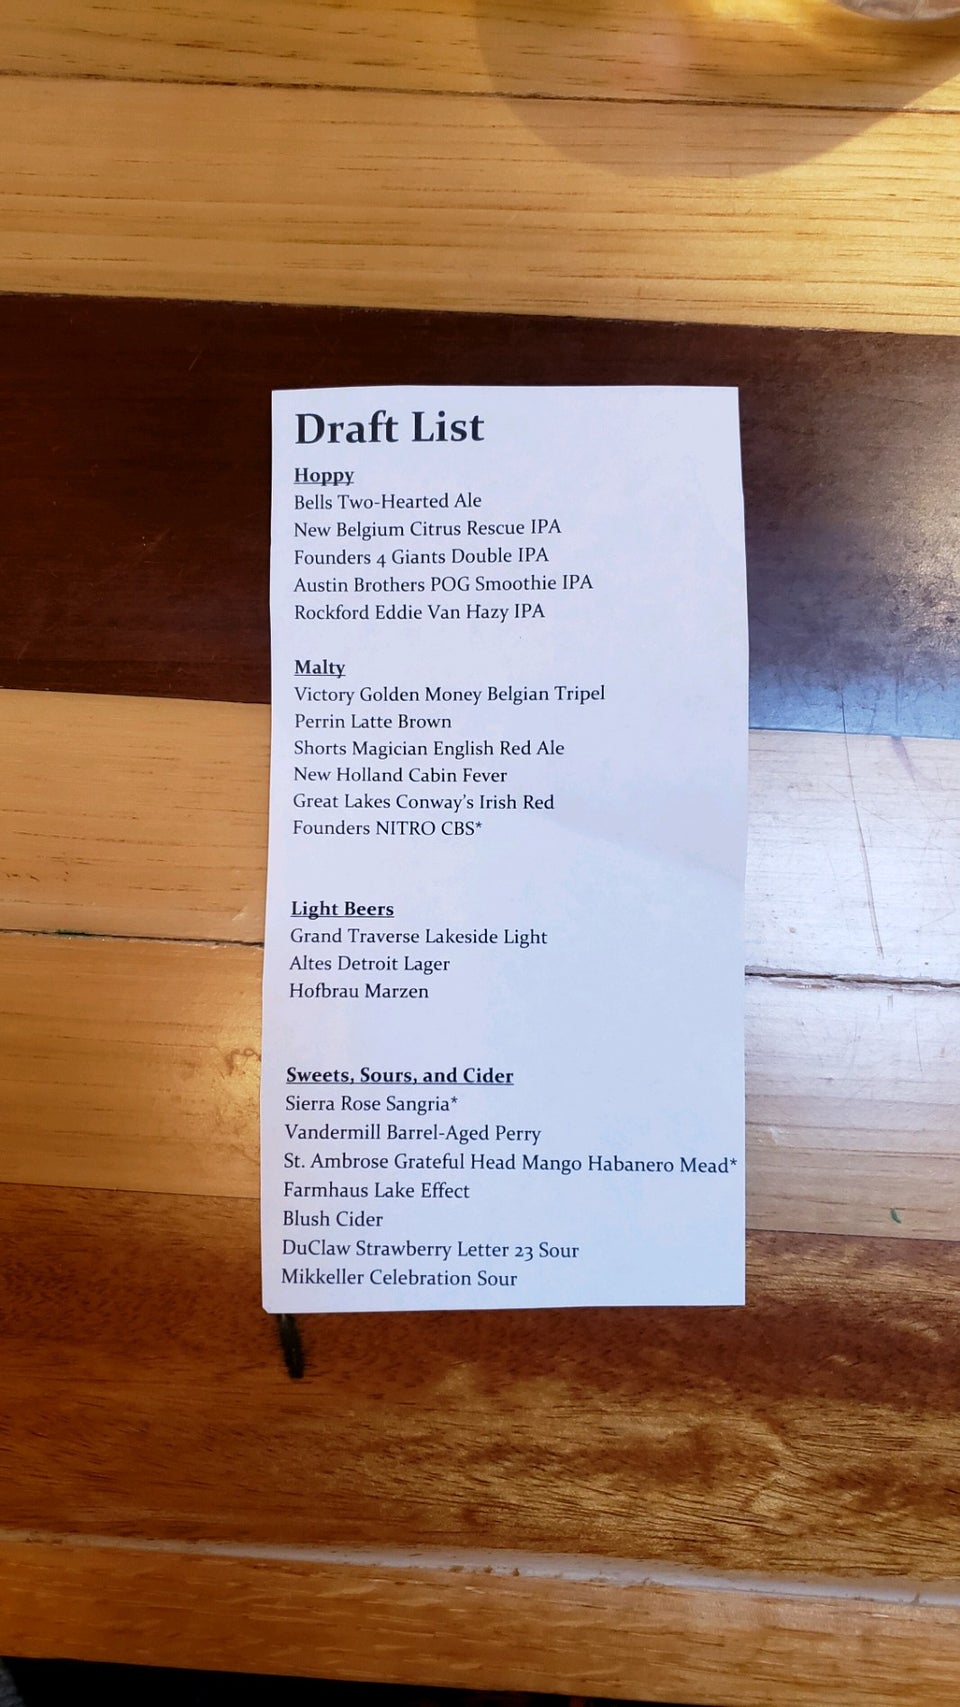 Draft List
Hoppy
Bells Two-Hearted Ale
New Belgium Citrus Rescue IPA
Founders 4 Giants Double IPA
Austin Brothers POG Smoothie IPA
Rockford Eddie Van Hazy IPA
Malty
Victory Golden Money Belgian Tripel
Perrin Latte Brown
Shorts Magician English Red Ale
New Holland Cabin Fever
Great Lakes Conway's Irish Red
Founders NITRO CBS*
Light Beers
Grand Traverse Lakeside Light
Altes Detroit Lager
Hofbrau Marzen
Sweets, Sours, and Cider
Sierra Rose Sangria*
Vandermill Barrel-Aged Perry
St. Ambrose Grateful Head Mango Habanero Mead*
Farmhaus Lake Effect
Blush Cider
DuClaw Strawberry Letter 23 Sour
Mikkeller Celebration Sour